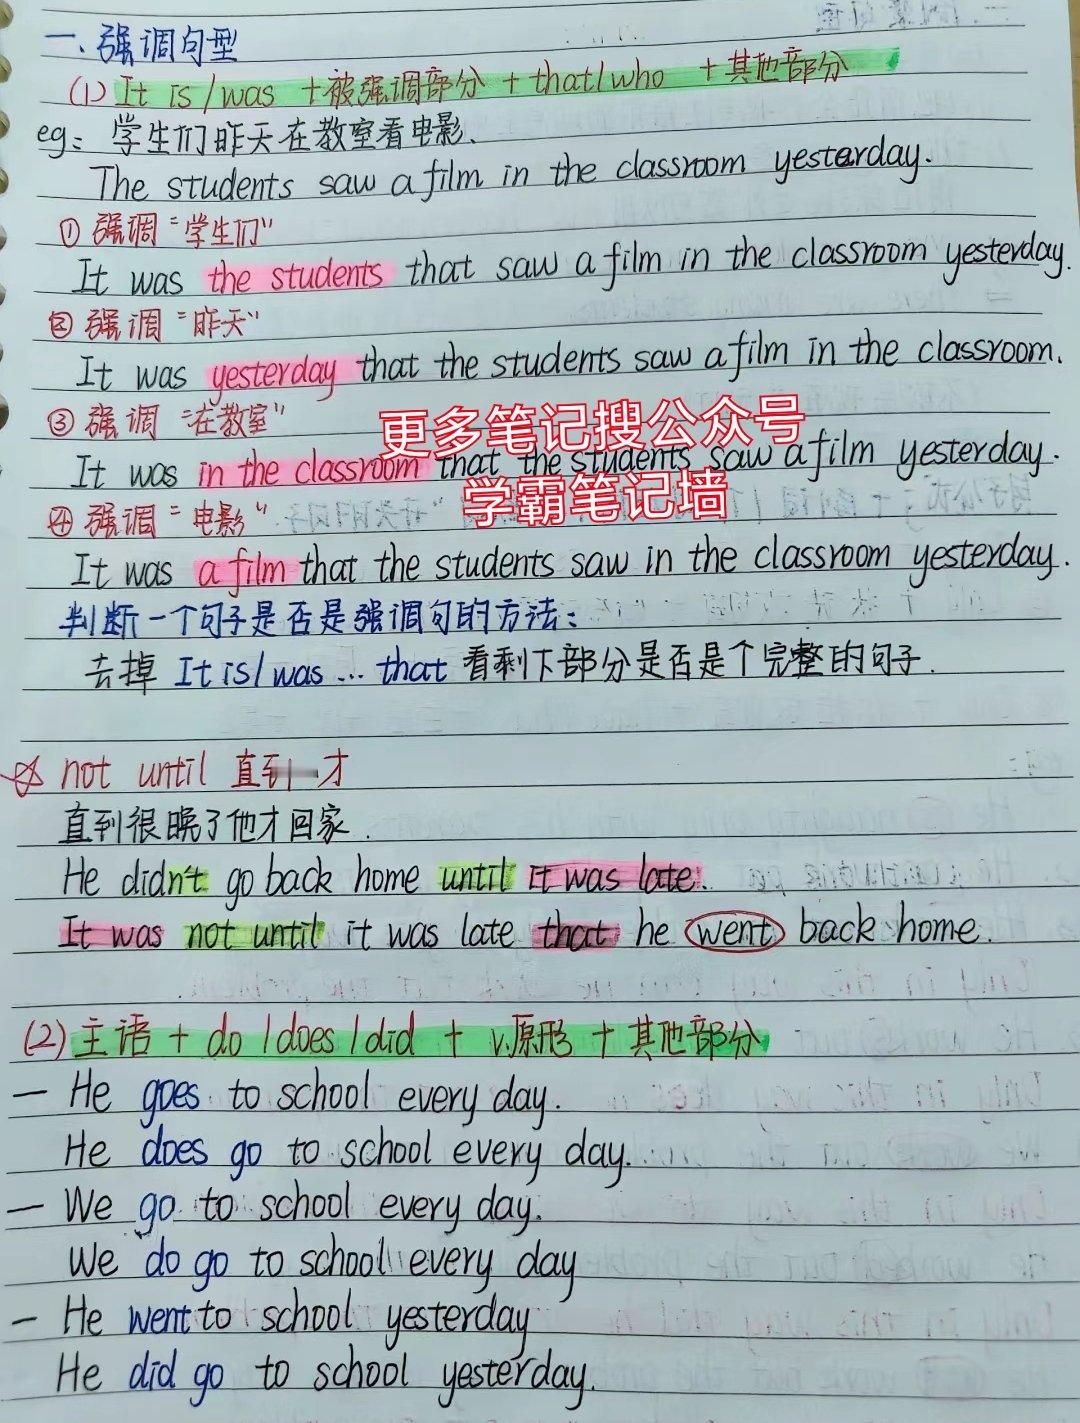 一、强调句型
(1) It is/was +被强调部分 + that/who +其他部分
eg: 学生们昨天在教室看电影.
The students saw a film in the classroom yesterday.
① 强调"学生们"
It was the students that saw a film in the classroom yesterday.
② 强调"昨天"
It was yesterday that the students saw a film in the classroom.
③ 强调"在教室"
更多笔记搜公众号
It was in the classroom that the students saw a film yesterday.
学霸笔记墙
④ 强调"电影"
It was a film that the students saw in the classroom yesterday.
判断一个句子是否是强调句的方法:
去掉 It is/was ... that 看剩下部分是否是个完整的句子.
not until 直到—才
直到很晚了他才回家.
He didn't go back home until it was late.
It was not until it was late that he went back home.
(2) 主语 + do/does/did + v.原形 + 其他部分
— He goes to school every day.
He does go to school every day.
— We go to school every day.
We do go to school every day
— He went to school yesterday
He did go to school yesterday.